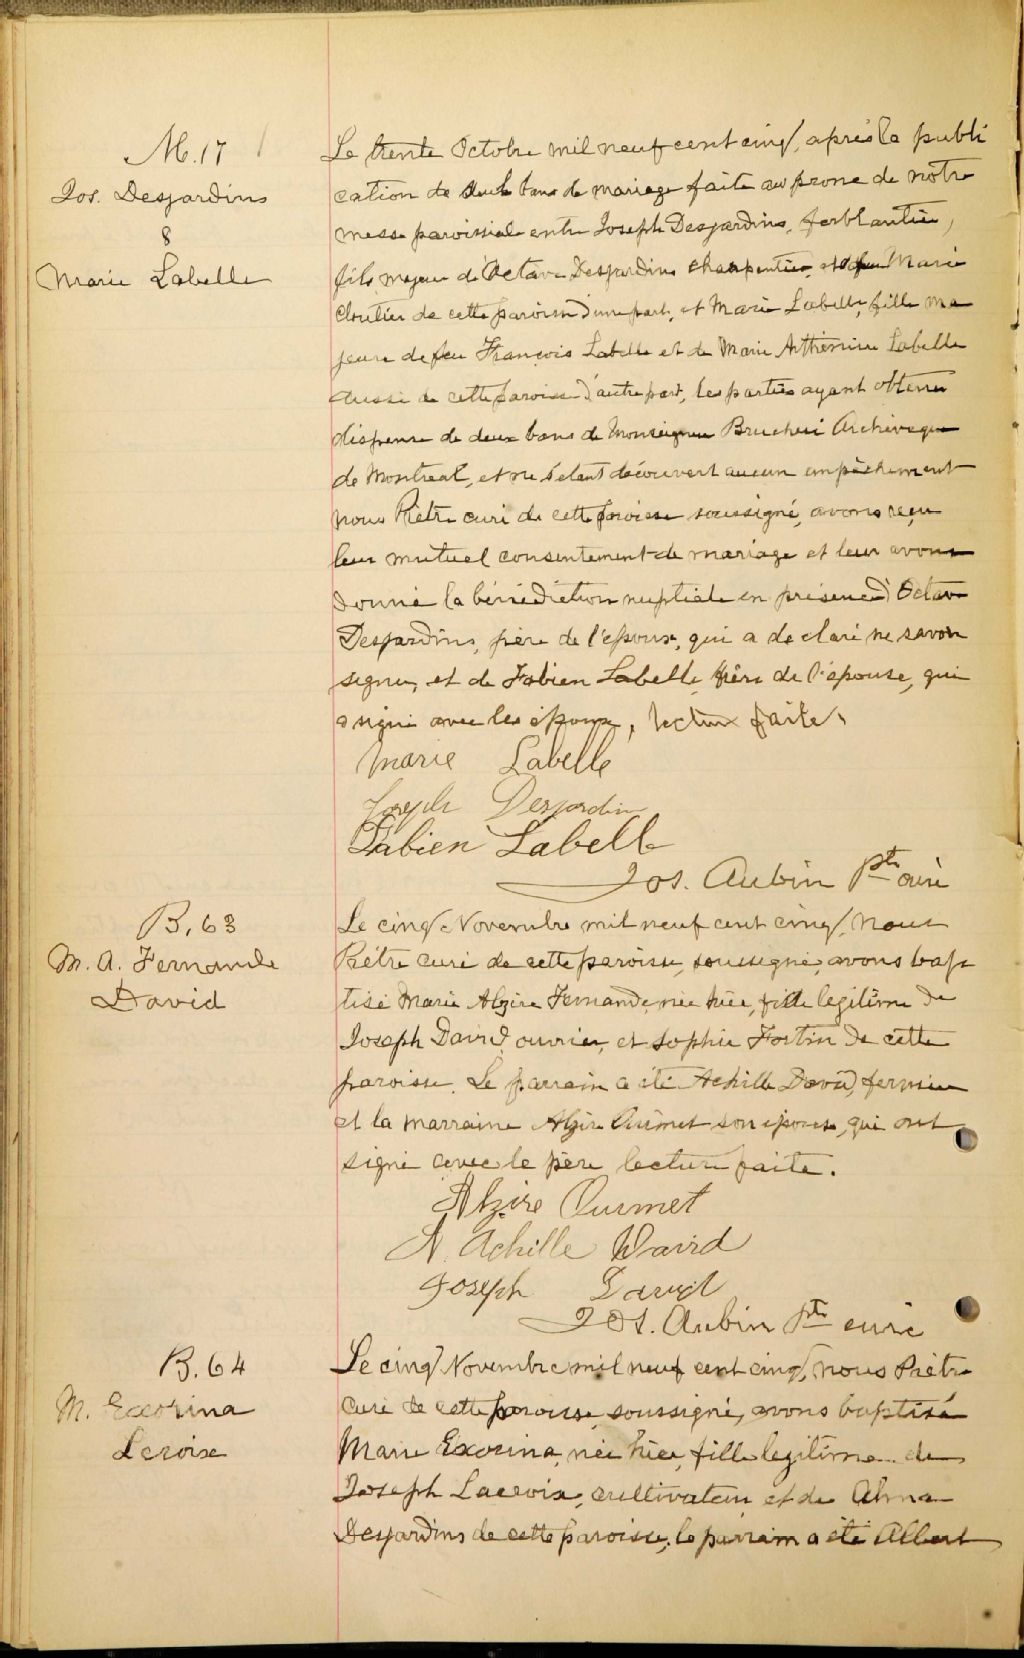 M. 17
Jos. Desjardins
&
Marie Labelle
Le trente Octobre mil neuf cent cinq, après la publi
cation de seul bans de mariage faite au prone de notre
messe paroissiale entre Joseph Desjardins, ferblantier,
fils majeur d'Octave Desjardins charpentier, et de feu Marie
Cloutier de cette paroisse d'une part, et Marie Labelle, fille ma
jeure de feu François Labelle et de Marie Arthémise Labelle
aussi de cette paroisse d'autre part, les parties ayant obtenu
dispense de deux bans de Monseigneur Bruchesi Archevêque
de Montreal, et ne s'etant découvert aucun empêchement
nous Prêtre curé de cette paroisse soussigné, avons reçu
leur mutuel consentement de mariage et leur avons
donné la bénédiction nuptiale en présence d'Octave
Desjardins, père de l'époux, qui a declaré ne savoir
signer, et de Fabien Labelle, frère de l'épouse, qui
a signé avec les époux, lecture faite.
Marie Labelle
Joseph Desjardins
Fabien Labelle
Jos. Aubin Ptre curé
B. 63
M. A. Fernande
David
Le cinq Novembre mil neuf cent cinq, nous
Prêtre curé de cette paroisse, soussigné, avons bap
tisé Marie Alzire Fernande, née hier, fille legitime de
Joseph David, ouvrier, et Sophie Fortin de cette
paroisse. Le parrain a été Achille David, fermier
et la marraine Alzire Ouimet son épouse, qui ont
signé avec le père lecture faite.
Alzire Ouimet
A. Achille David
Joseph David
Jos. Aubin Ptre curé
B. 64
M. Exorina
Lacroix
Le cinq Novembre mil neuf cent cinq, nous Prêtre
curé de cette paroisse soussigné, avons baptisé
Marie Exorina, née hier, fille legitime de
Joseph Lacroix, cultivateur et de Alma
Desjardins de cette paroisse, le parrain a été Albert